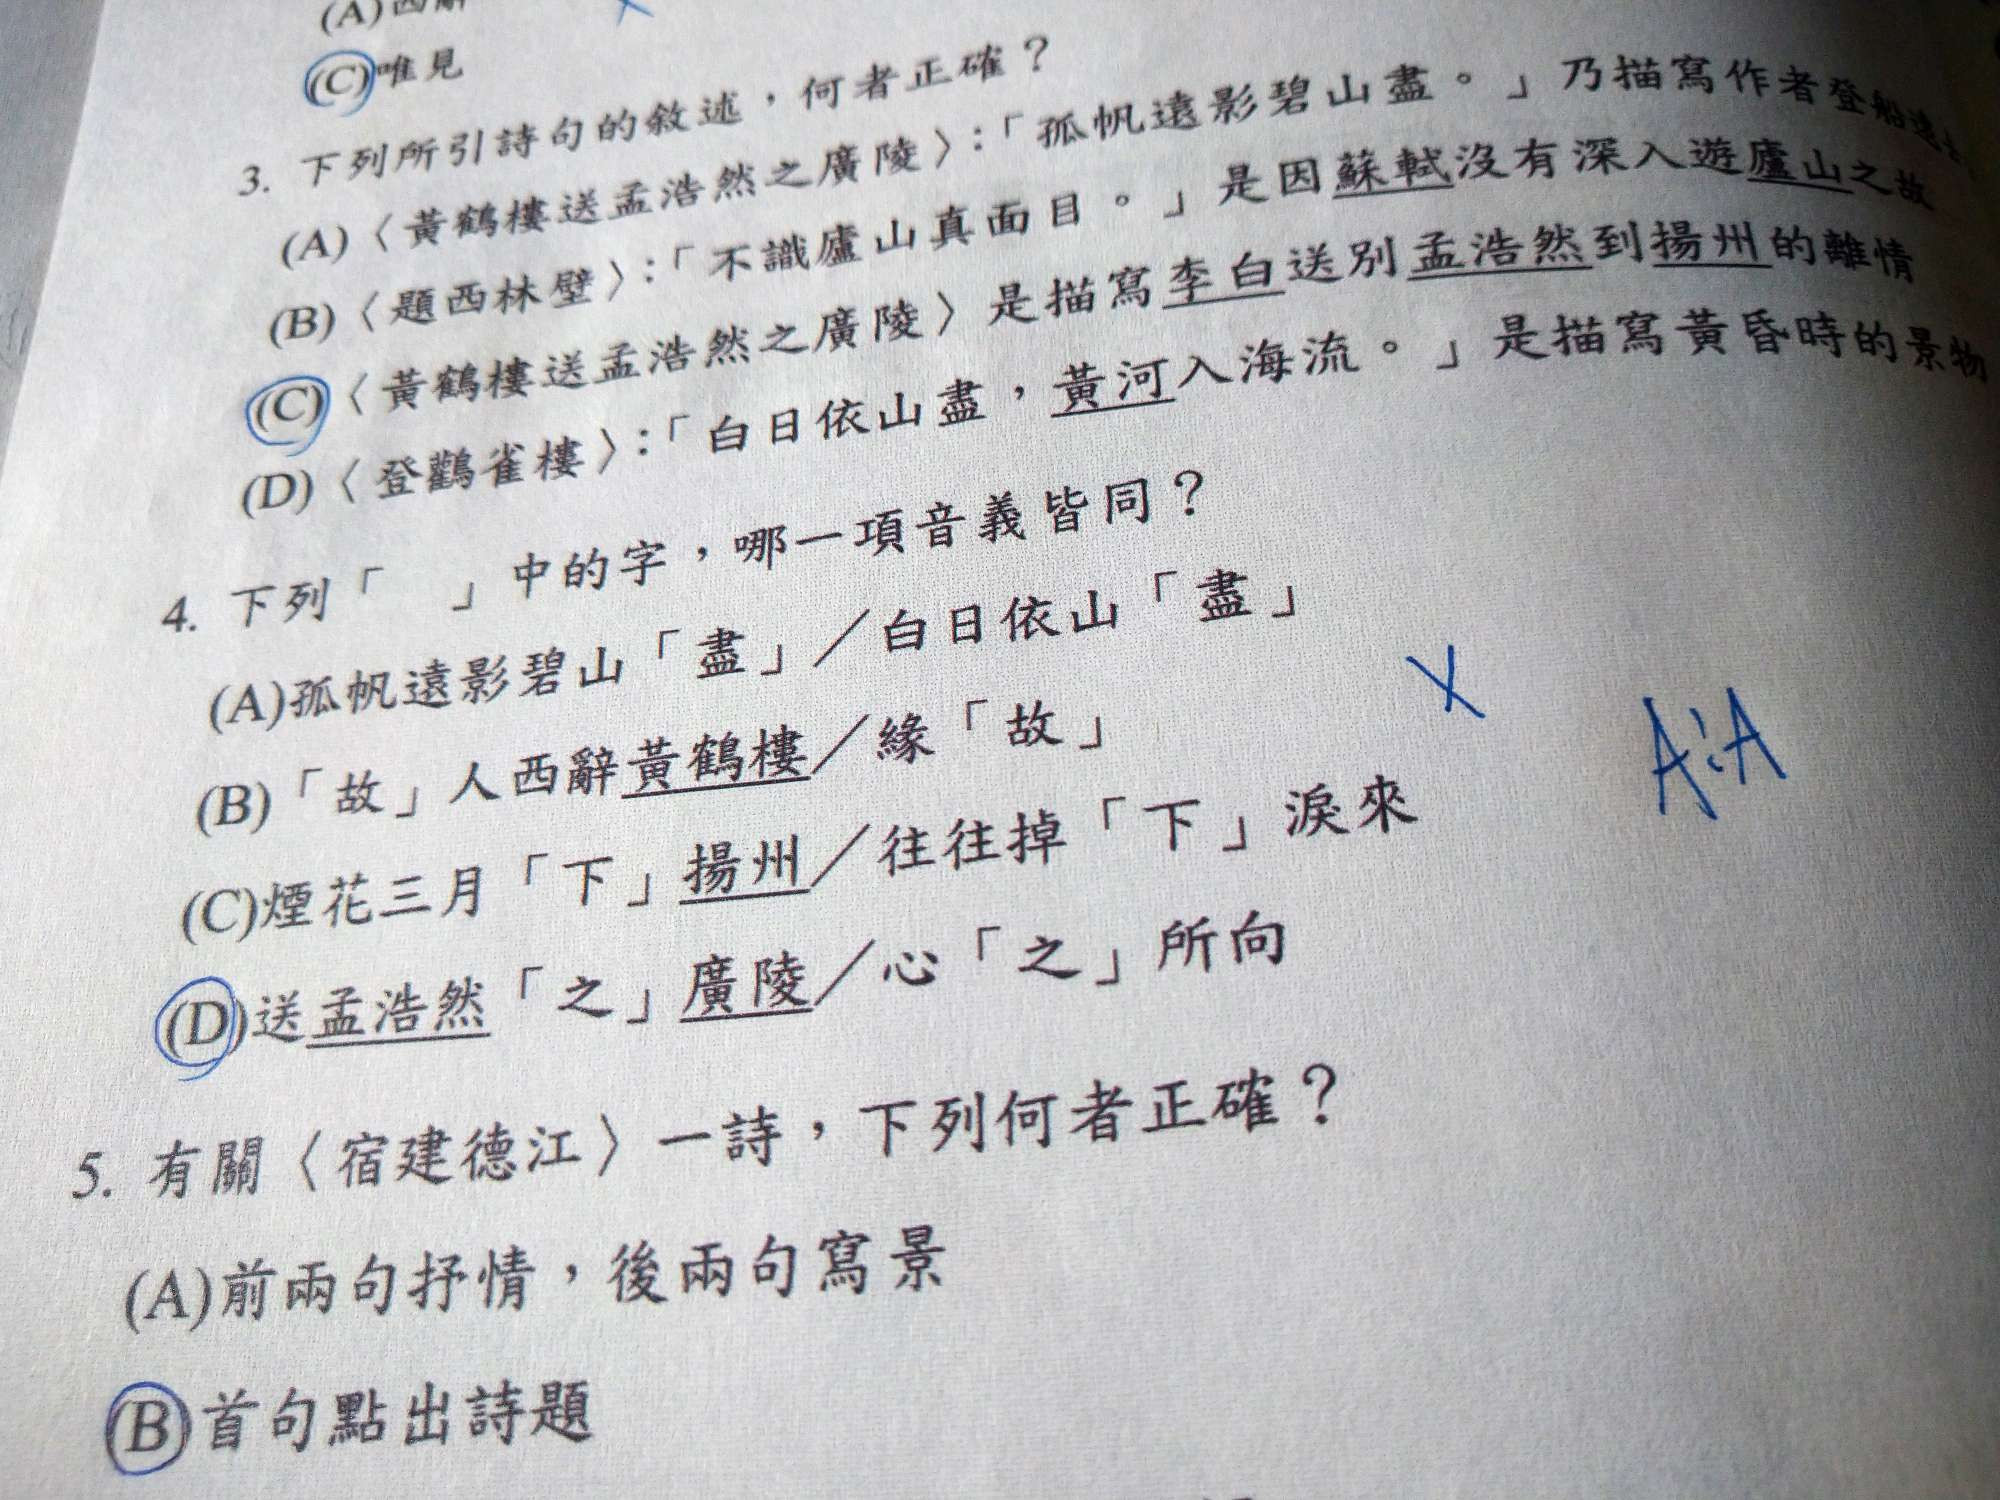 (C)唯見
3. 下列所引詩句的敘述，何者正確？
(A)〈黃鶴樓送孟浩然之廣陵〉：「孤帆遠影碧山盡。」乃描寫作者登船遠去
(B)〈題西林壁〉：「不識廬山真面目。」是因蘇軾沒有深入遊廬山之故
(C)〈黃鶴樓送孟浩然之廣陵〉是描寫李白送別孟浩然到揚州的離情
(D)〈登鸛雀樓〉：「白日依山盡，黃河入海流。」是描寫黃昏時的景物
4. 下列「　」中的字，哪一項音義皆同？
(A)孤帆遠影碧山「盡」／白日依山「盡」
(B)「故」人西辭黃鶴樓／緣「故」
(C)煙花三月「下」揚州／往往掉「下」淚來
A:A
(D)送孟浩然「之」廣陵／心「之」所向
5. 有關〈宿建德江〉一詩，下列何者正確？
(A)前兩句抒情，後兩句寫景
(B)首句點出詩題